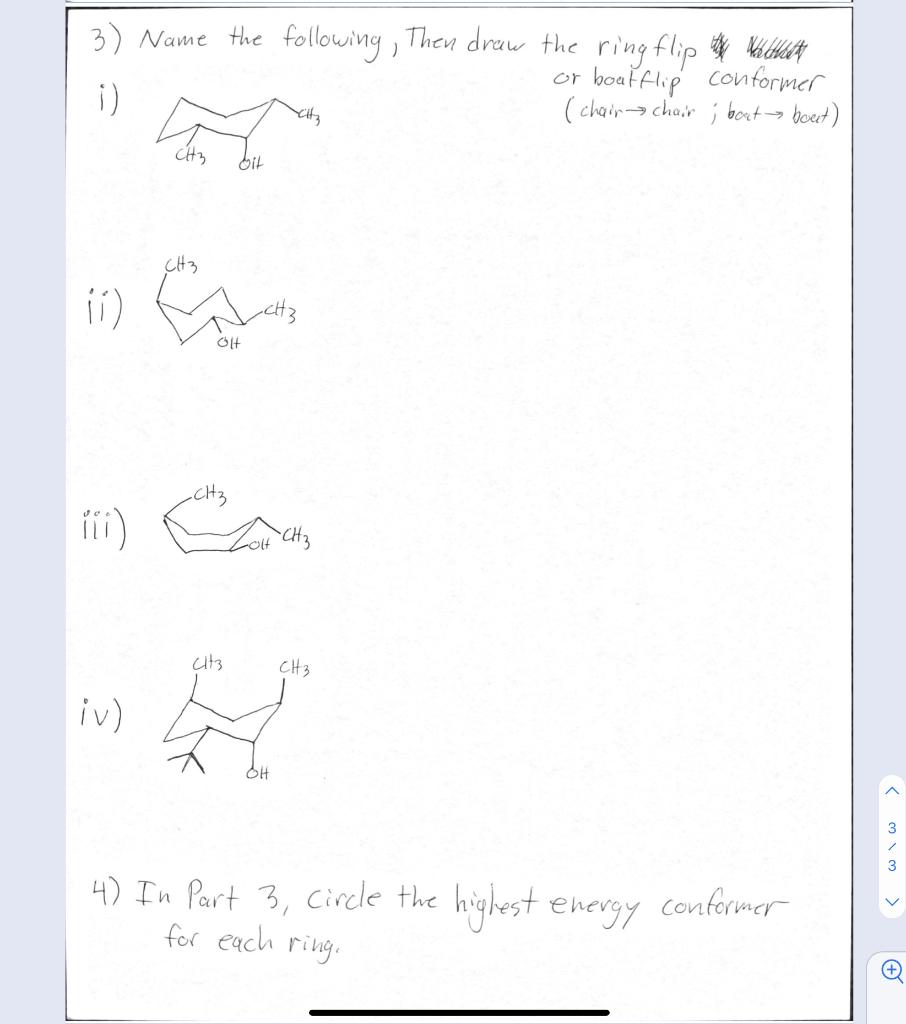 3) Name the following, Then draw the ring flip
or boatflip conformer
(chair→chair ; boat→ boat)
i)
CH3
CH3
OH
CH3
ii)
CH3
OH
CH3
iii)
CH3
OH
CH3
CH3
iv)
OH
3
/
3
4) In Part 3, circle the highest energy conformer
for each ring.